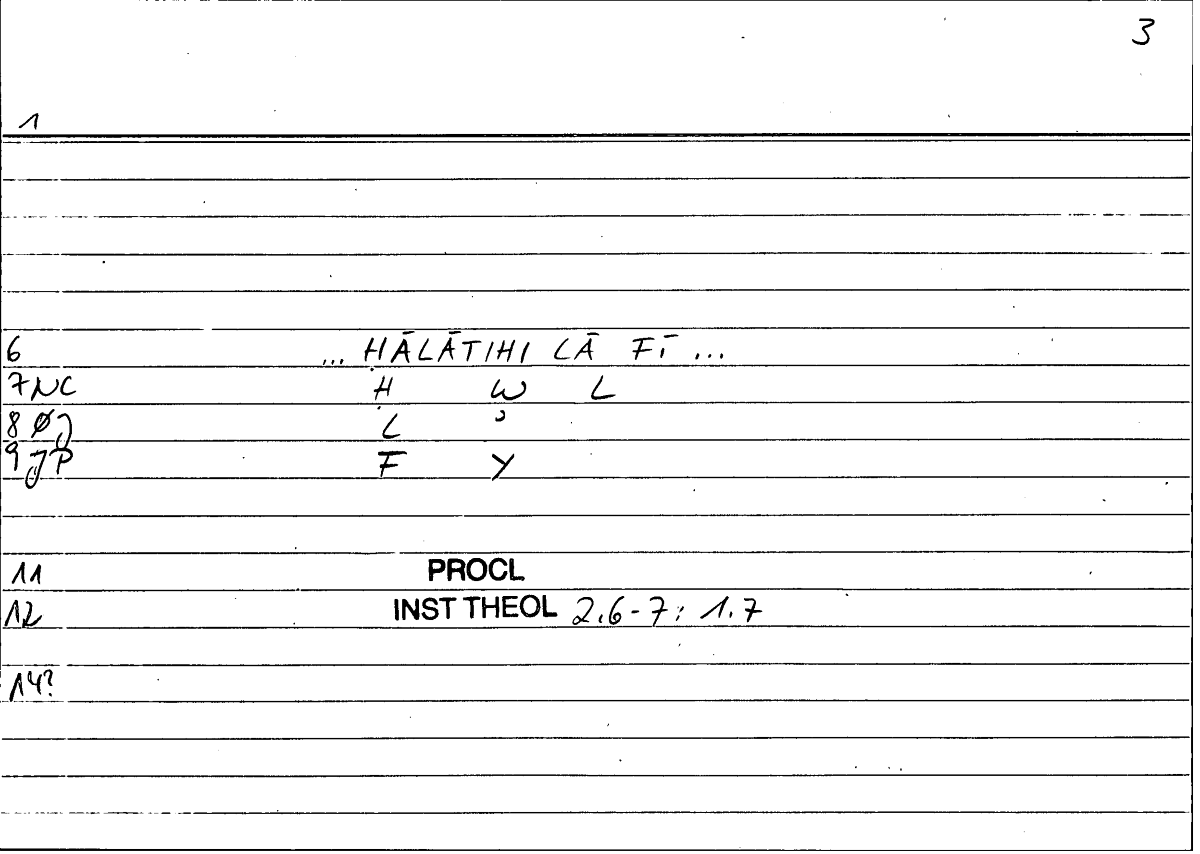 3
1
6 ... ḤĀLĀTIHI LĀ FĪ ...
7NC Ḥ W L
8 ØJ L ʾ
9 JP F Y
11 PROCL
12 INST THEOL 2.6-7: 1.7
14?